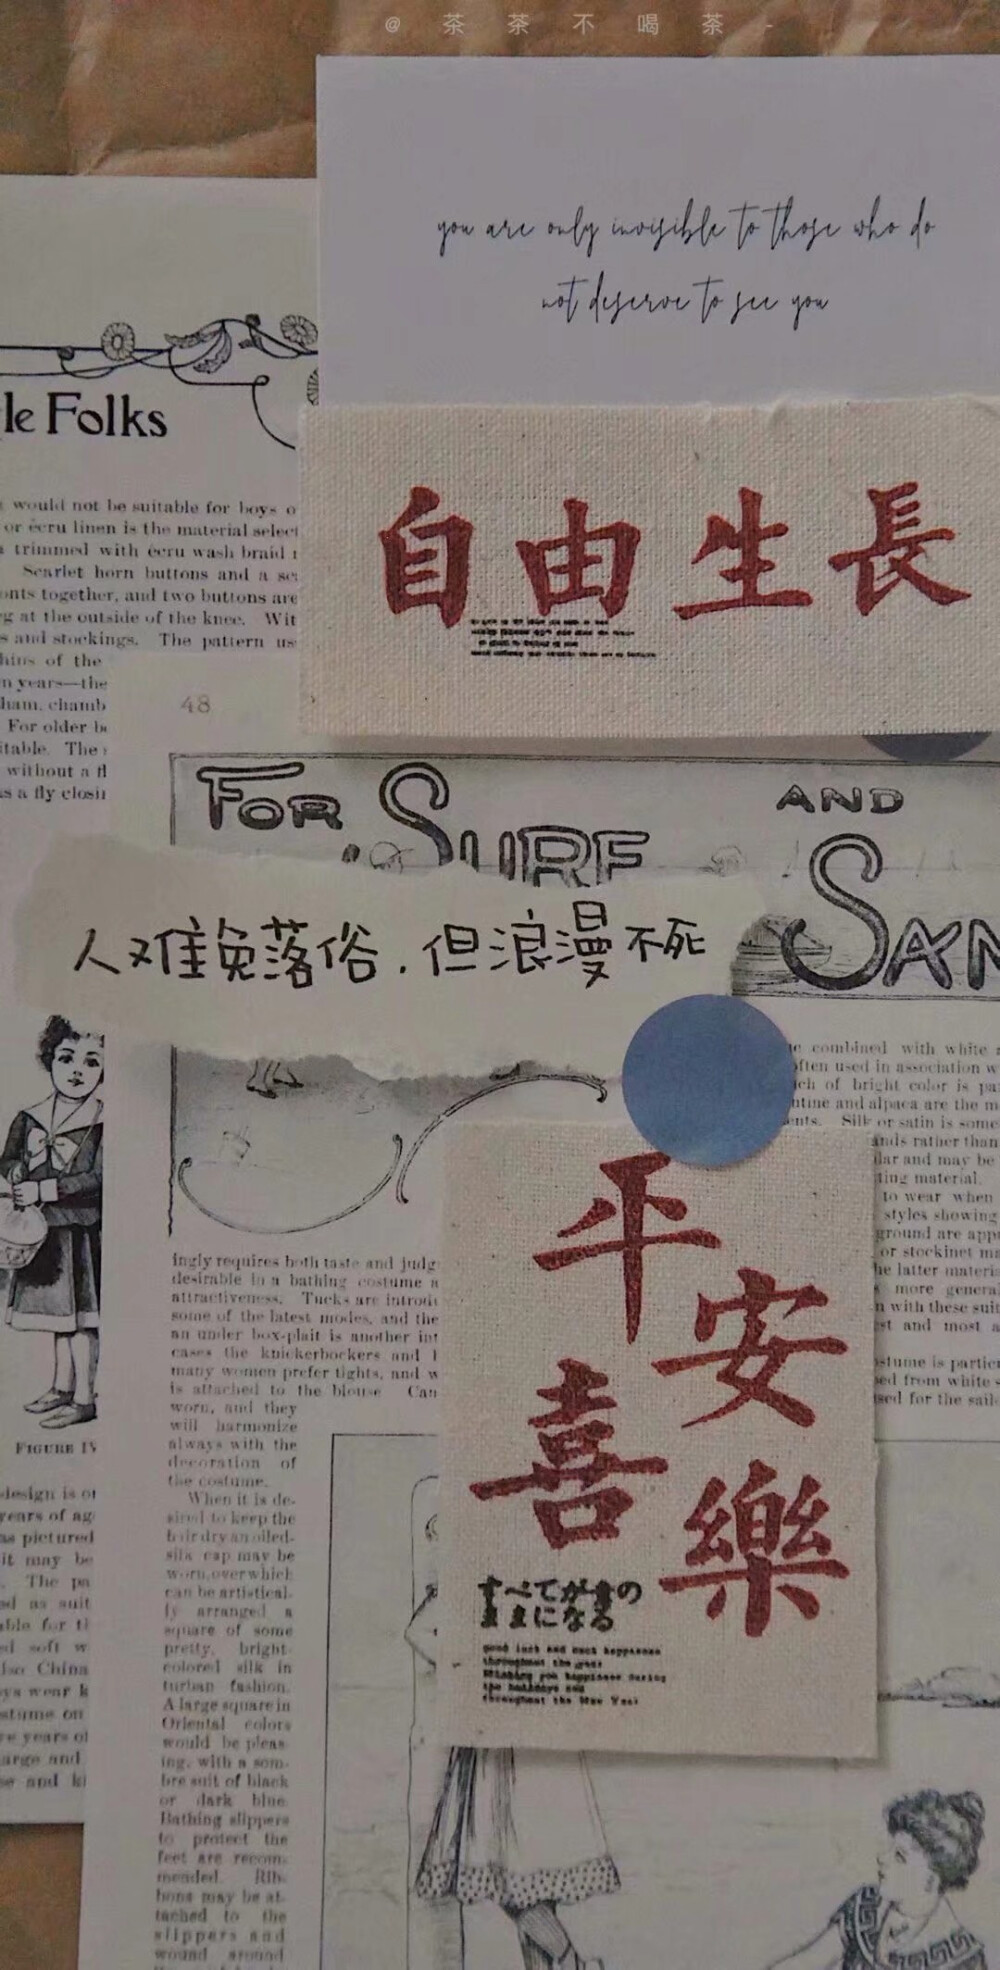 @茶茶不喝茶-
you are only invisible to those who do
not deserve to see you
le Folks
would not be suitable for boys o
or écru linen is the material select
trimmed with écru wash braid
Scarlet horn buttons and a
onts together, and two buttons are
g at the outside of the knee. Wit
s and stockings. The pattern us
of the
n years—the
ham, chamb
For older b
itable. The
without a fl
as a fly closin
自由生長
48
FOR SURF AND SAN
人难免落俗，但浪漫不死
combined with white
often used in association w
ch of bright color is pa
ntine and alpaca are the m
ents. Silk or satin is some
ands rather than
lar and may be
ting material.
to wear when
styles showing
ground are app
or stockinet ma
he latter materia
more genera
n with these suit
est and most a
stume is partic
ed from white s
sed for the sail
平安
喜樂
すべてが意の
ままになる
good luck and much happiness
throughout the year
Wishing you happiness during
the holidays and
throughout the New Year
ingly requires both taste and judg
desirable in a bathing costume a
attractiveness. Tucks are introdu
some of the latest modes, and the
an under box-plait is another int
cases the knickerbockers and
many women prefer tights, and w
is attached to the blouse Can
worn, and they
will harmonize
always with the
decoration of
the costume.
When it is de-
sired to keep the
hair dry an oiled-
silk cap may be
worn, over which
can be artistical-
ly arranged a
square of some
pretty, bright-
colored silk in
turban fashion.
A large square in
Oriental colors
would be pleas-
ing, with a som-
bre suit of black
or dark blue.
Bathing slippers
to protect the
feet are recom-
mended. Rib-
bons may be at-
tached to the
slippers and
wound around
FIGURE IV
design is of
years of ag
as pictured
it may be
The pa
ed as suit
able for th
ed soft w
lso China
ys wear k
stume on
e years of
arge and
se and ki